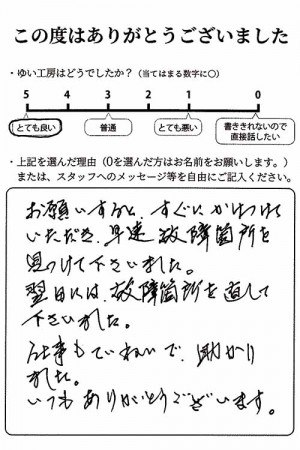 この度はありがとうございました
・ゆい工房はどうでしたか？（当てはまる数字に○）
5 4 3 2 1 0
とても良い 普通 とても悪い 書ききれないので直接話したい
・上記を選んだ理由（0を選んだ方はお名前をお願いします。）
または、スタッフへのメッセージ等を自由にご記入ください。
お願いすると、すぐにかけつけて
いただき、早速故障箇所を
見つけて下さいました。
翌日には、故障箇所を直して
下さいました。
仕事もていねいで、助かり
ました。
いつもありがとうございます。